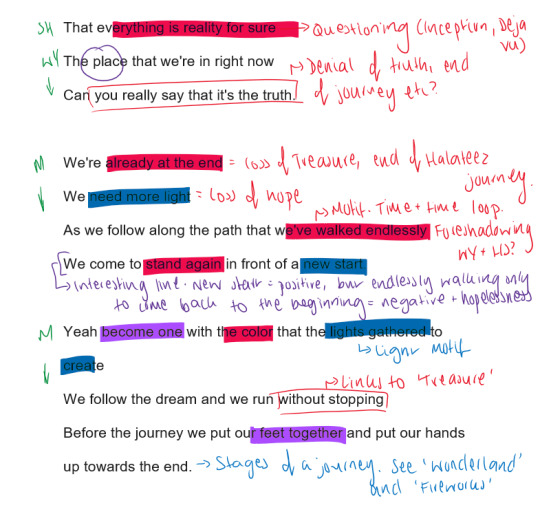 SH That everything is reality for sure → Questioning (Inception, Deja vu)
WY The place that we're in right now
→ Denial of truth, end of journey etc?
Can you really say that it's the truth.
M We're already at the end = loss of Treasure, end of Halateez journey.
We need more light = loss of hope
→ Motif. Time + time loop.
As we follow along the path that we've walked endlessly Foreshadowing WY + HJ?
We come to stand again in front of a new start
↳ interesting line. New start = positive, but endlessly walking only
to come back to the beginning = negative + hopelessness
M Yeah become one with the color that the lights gathered to
↳ Light motif
create
→ Links to 'Treasure'
We follow the dream and we run without stopping
Before the journey we put our feet together and put our hands
up towards the end. → Stages of a journey. See 'Wonderland'
and 'Fireworks'